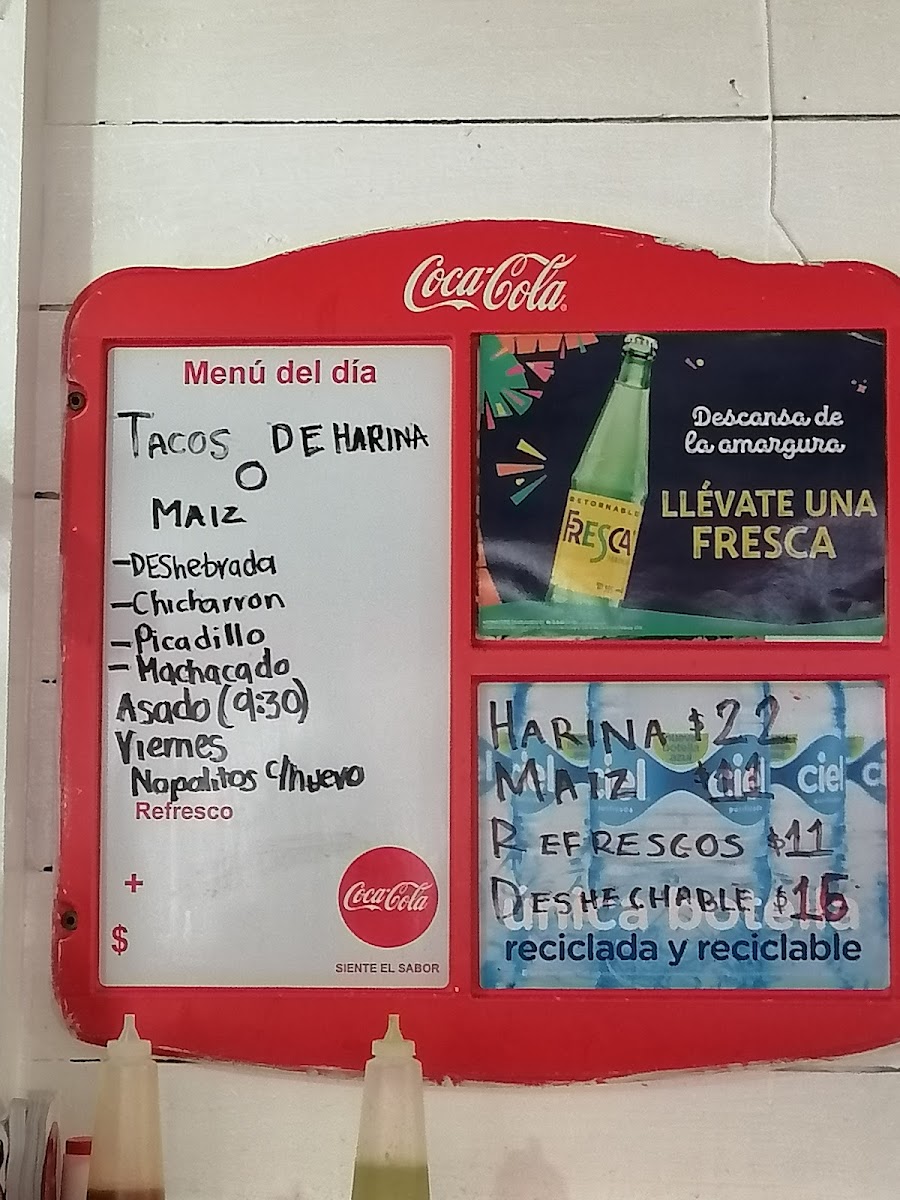 Coca-Cola
Menú del día
TACOS DE HARINA
O
MAIZ
-DEShebrada
-Chicharron
-Picadillo
-Machacado
Asado (9:30)
Viernes
Nopalitos c/huevo
Refresco
+
$
Coca-Cola
SIENTE EL SABOR
Descansa de
la amargura
LLÉVATE UNA
FRESCA
RETORNABLE
FRESCA
HARINA $22
MAIZ $11
ciel ciel ciel
REFRESCOS $11
DESHECHABLE $16
única botella
reciclada y reciclable